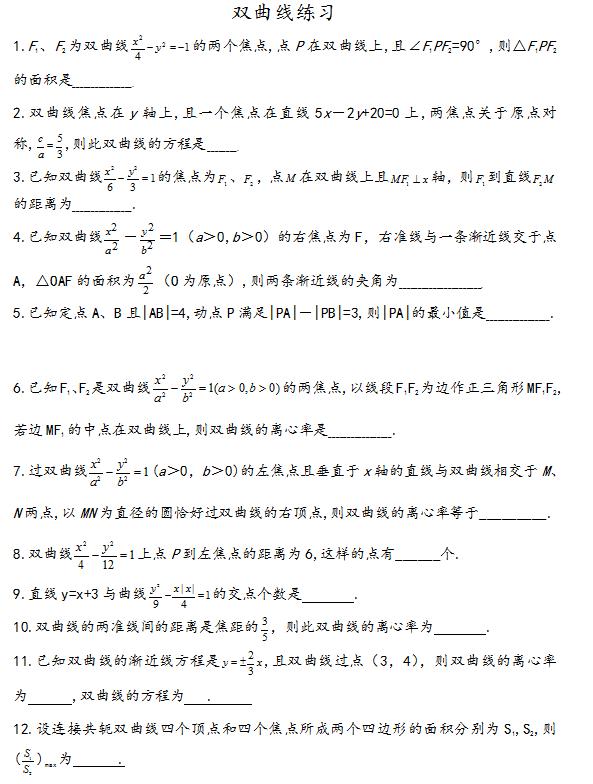 双曲线练习
1.F₁、F₂为双曲线x²/4-y²=-1的两个焦点,点P在双曲线上,且∠F₁PF₂=90°,则△F₁PF₂
的面积是________.
2.双曲线焦点在y轴上,且一个焦点在直线5x-2y+20=0上,两焦点关于原点对
称,c/a=5/3,则此双曲线的方程是____.
3.已知双曲线x²/6-y²/3=1的焦点为F₁、F₂,点M在双曲线上且MF₁⊥x轴,则F₁到直线F₂M
的距离为________.
4.已知双曲线x²/a²-y²/b²=1(a>0,b>0)的右焦点为F,右准线与一条渐近线交于点
A,△OAF的面积为a²/2(O为原点),则两条渐近线的夹角为___________
5.已知定点A、B且|AB|=4,动点P满足|PA|-|PB|=3,则|PA|的最小值是________.
6.已知F₁、F₂是双曲线x²/a²-y²/b²=1(a>0,b>0)的两焦点,以线段F₁F₂为边作正三角形MF₁F₂,
若边MF₁的中点在双曲线上,则双曲线的离心率是________.
7.过双曲线x²/a²-y²/b²=1(a>0,b>0)的左焦点且垂直于x轴的直线与双曲线相交于M、
N两点,以MN为直径的圆恰好过双曲线的右顶点,则双曲线的离心率等于________.
8.双曲线x²/4-y²/12=1上点P到左焦点的距离为6,这样的点有_____个.
9.直线y=x+3与曲线y²/9-x|x|/4=1的交点个数是______.
10.双曲线的两准线间的距离是焦距的3/5,则此双曲线的离心率为______.
11.已知双曲线的渐近线方程是y=±2/3x,且双曲线过点(3,4),则双曲线的离心率
为_____,双曲线的方程为__.__
12.设连接共轭双曲线四个顶点和四个焦点所成两个四边形的面积分别为S₁,S₂,则
(S₁/S₂)max为_____.